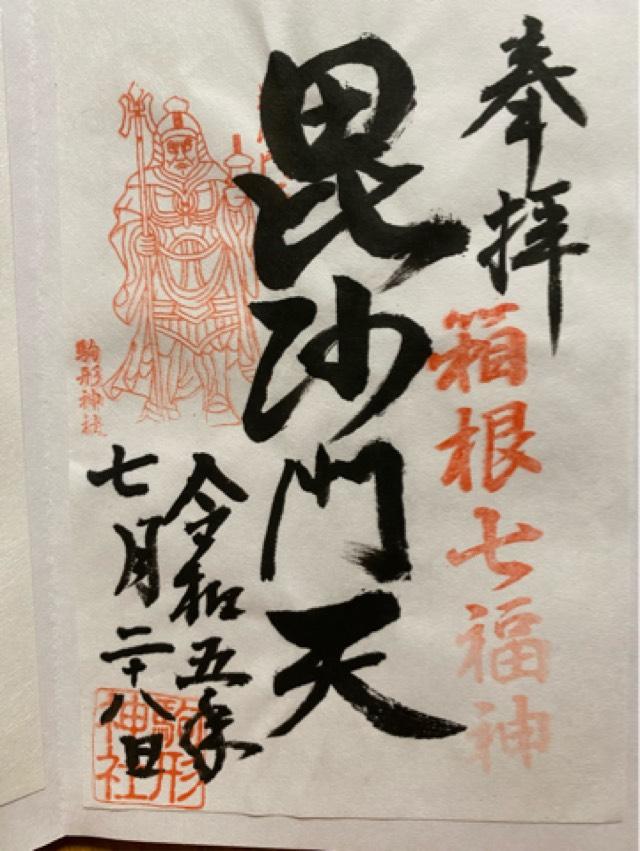 奉拝
箱根七福神
毘沙門天
令和五年
七月二十八日
駒形神社
駒形神社